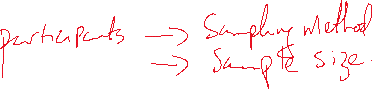 participants → Sampling Method
→ Sample size.